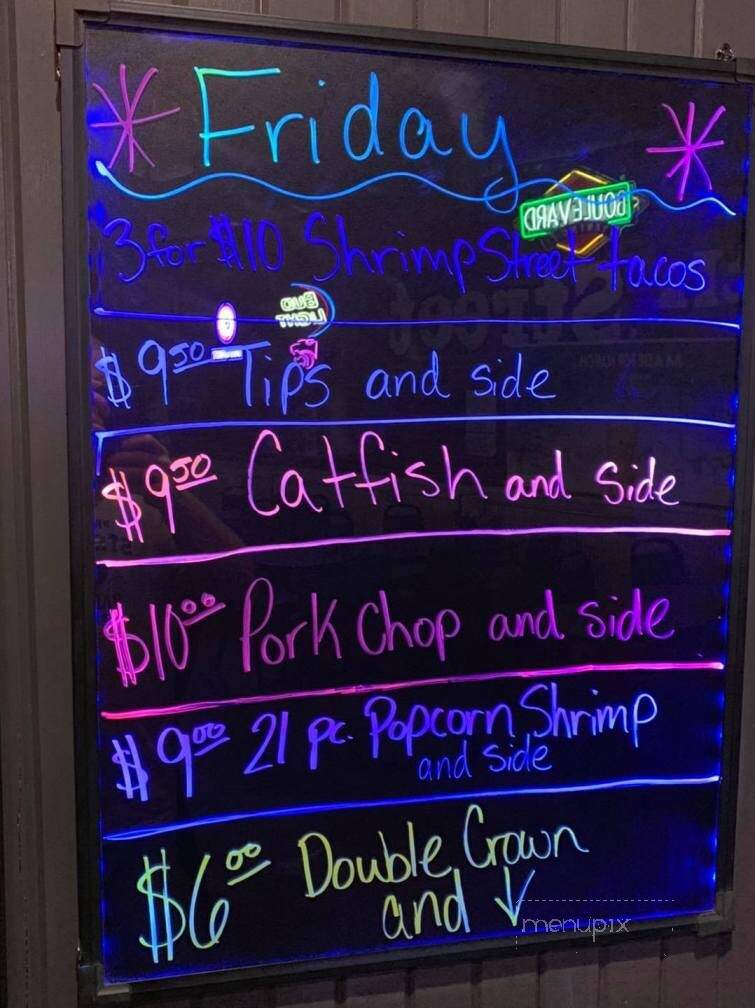 Friday
BOULEVARD
3 for $10 Shrimp Street tacos
BUD
LIGHT
$9.50 Tips and side
$9.50 Catfish and side
$10.00 Pork Chop and side
$9.00 21 pc. Popcorn Shrimp
and side
$6.00 Double Crown
and ↓
menupix